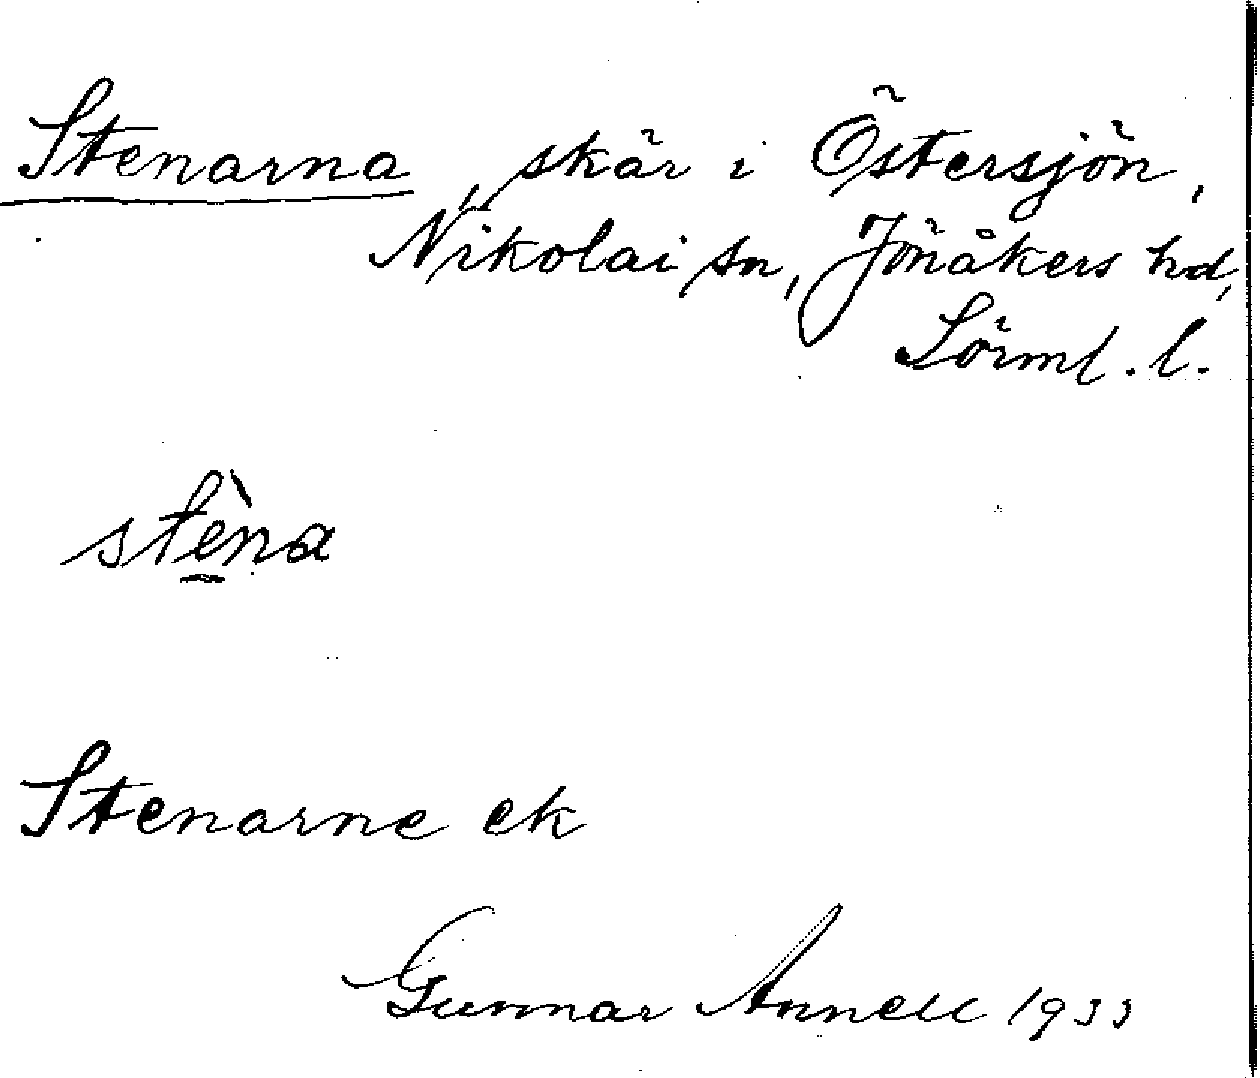 Stenarna, skär i Östersjön,
Nikolai sn, Jönåkers hd,
Sörml. l.
stèna
Stenarne ek
Gunnar Annell 1933